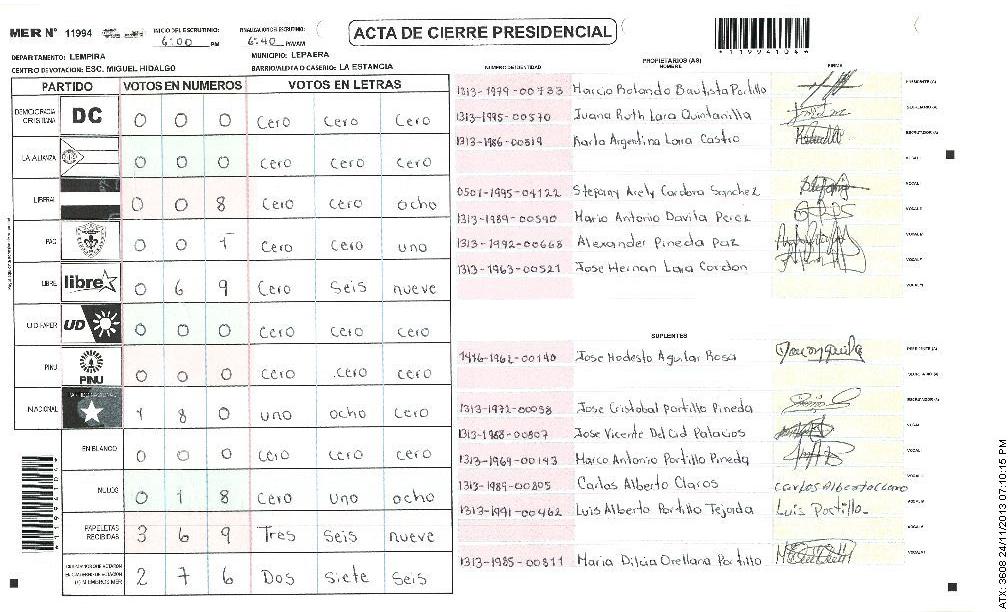 MER N° 11994
INICIO DEL ESCRUTINIO: 6:00 PM
FINALIZACION ESCRUTINIO: 6:40 PM/AM
ACTA DE CIERRE PRESIDENCIAL
DEPARTAMENTO: LEMPIRA
MUNICIPIO: LEPAERA
CENTRO DE VOTACION: ESC. MIGUEL HIDALGO
BARRIO/ALDEA O CASERIO: LA ESTANCIA
PARTIDO VOTOS EN NUMEROS VOTOS EN LETRAS
DEMOCRACIA CRISTIANA DC 0 0 0 Cero Cero Cero
LA ALIANZA 0 0 0 Cero Cero Cero
LIBERAL 0 0 8 Cero Cero ocho
PAC 0 0 1 Cero Cero uno
LIBRE libre 0 6 9 Cero Seis nueve
UD FAPER UD 0 0 0 Cero Cero Cero
PINU PINU 0 0 0 Cero Cero Cero
NACIONAL 1 8 0 uno ocho Cero
EN BLANCO 0 0 0 Cero Cero Cero
NULOS 0 1 8 Cero uno ocho
PAPELETAS RECIBIDAS 3 6 9 Tres Seis nueve
2 7 6 Dos Siete Seis
NUMERO DE IDENTIDAD PROPIETARIOS (AS) NOMBRE FIRMA
1313-1979-00733 Marcio Rolando Bautista Portillo PRESIDENTE (A)
1313-1995-00570 Juana Ruth Lara Quintanilla SECRETARIO (A)
1313-1986-00519 Karla Argentina Lara Castro ESCRUTADOR (A)
VOCAL I
0501-1995-04122 Stefany Arely Cordova Sanchez VOCAL
1313-1989-00590 Mario Antonio Davila Perez VOCAL
1313-1992-00668 Alexander Pineda paz VOCAL
1313-1963-00521 Jose Hernan Lara Cordon VOCAL
VOCAL
SUPLENTES
1416-1962-00140 Jose Modesto Aguilar Rosa PRESIDENTE (A)
SECRETARIO (A)
1313-1972-00058 Jose Cristobal Portillo Pineda ESCRUTADOR (A)
1313-1968-00807 Jose Vicente Del Cid Palacios VOCAL
1313-1969-00143 Marco Antonio Portillo Pineda VOCAL
1313-1989-00805 Carlos Alberto Claros Carlos Alberto Claros VOCAL
1313-1991-00462 Luis Alberto Portillo Tejada Luis Portillo VOCAL
VOCAL
1313-1985-00811 Maria Dilcia Orellana Portillo VOCAL
ATX: 3608 24/11/2013 07:10:15 PM